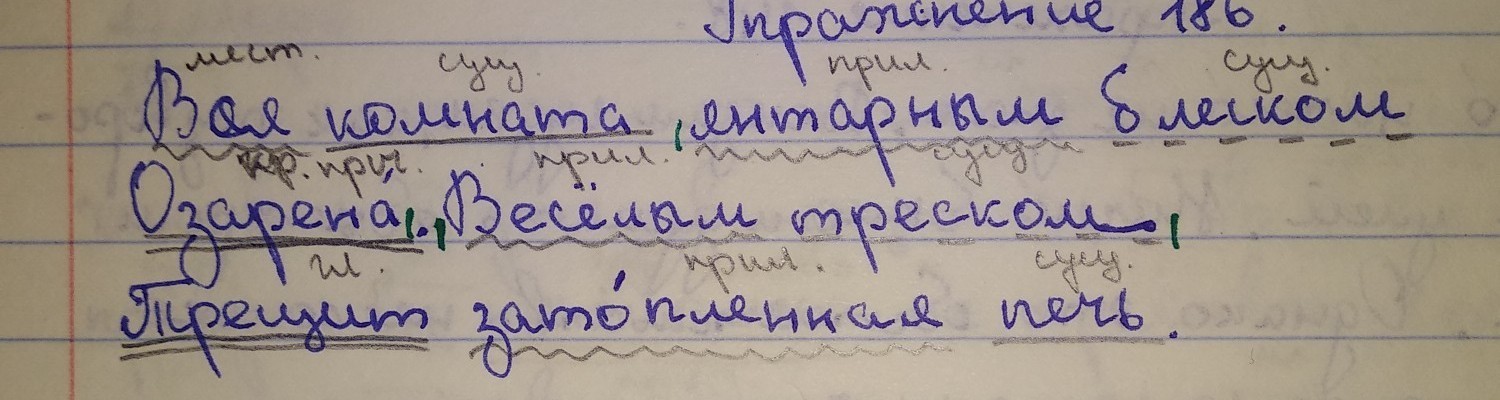 Упражнение 186.
мест. сущ. прил. сущ.
Вся комната, янтарным блеском
кр. прич. прил. сущ.
Озарена., Весёлым треском,
гл. прил. сущ.
Трещит зато́пленная печь.